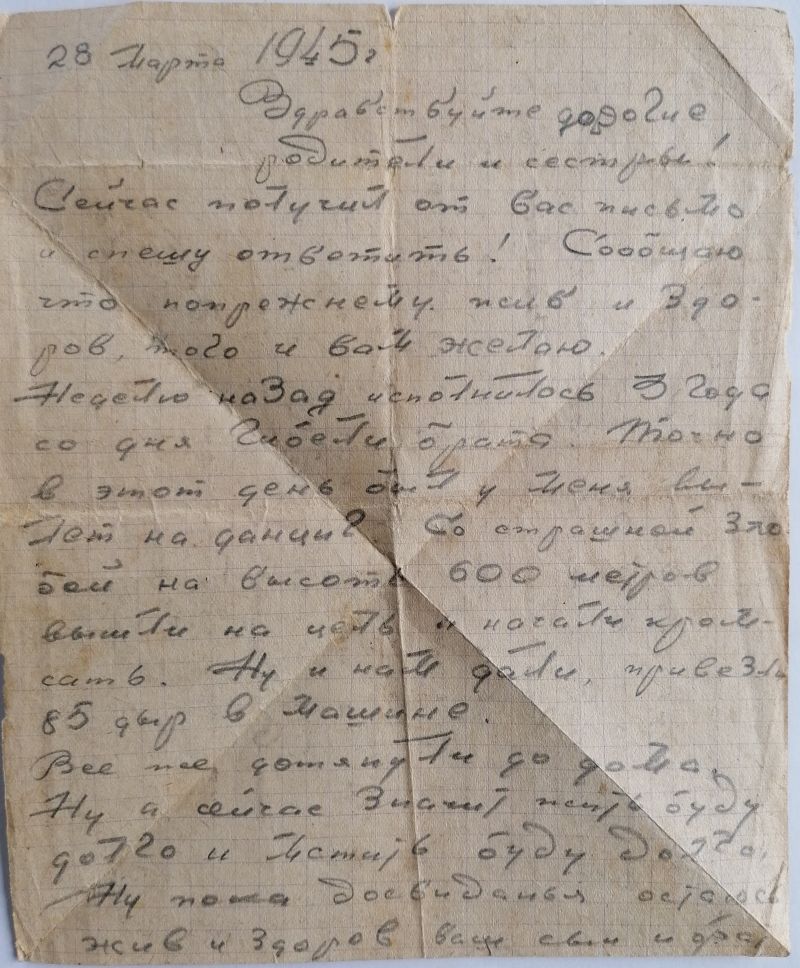 28 Марта 1945г
Здравствуйте дорогие
родители и сестры!
Сейчас получил от вас письмо
и спешу ответить! Сообщаю
что попрежнему жив и здо-
ров, того и вам желаю.
Неделю назад исполнилось 3 года
со дня гибели брата. Точно
в этот день был у меня вы-
лет на данциг. Со страшной зло
бой на высоте 600 метров
вышли на цель и начали кром-
сать. Ну и нам дали, привезли
85 дыр в машине.
Все же дотянули до дома.
Ну а сейчас значит жить буду
долго и мстить буду долго,
Ну пока досвиданья остаюсь
жив и здоров ваш сын и брат